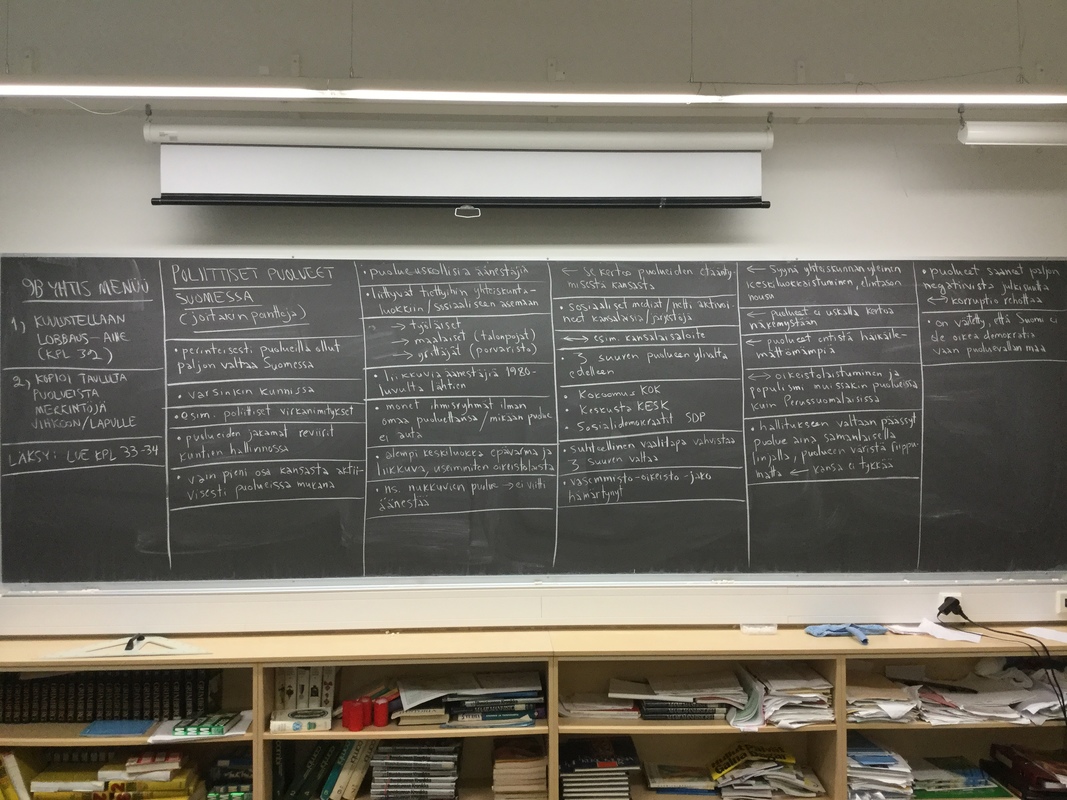 9B YHTIS MENÜÜ
1) KUULUSTELLAAN
LOBBAUS-AIHE
(KPL 32)
2) KOPIOI TAULULTA
PUOLUEISTA
MERKINTÖJÄ
VIHKOON/LAPULLE
LÄKSY: LUE KPL 33-34
POLIITTISET PUOLUEET
SUOMESSA
(joitakin pointteja)
• perinteisesti puolueilla ollut
paljon valtaa Suomessa
• varsinkin kunnissa
• esim. poliittiset virkanimitykset
• puolueiden jakamat reviirit
kuntien hallinnossa
• vain pieni osa kansasta aktii-
visesti puolueissa mukana
• puolueuskollisia äänestäjiä
• liittyvät tiettyihin yhteiskunta-
luokkiin/sosiaaliseen asemaan
→ työläiset
→ maalaiset (talonpojat)
→ yrittäjät (porvaristo)
• liikkuvia äänestäjiä 1980-
luvulta lähtien
• monet ihmisryhmät ilman
omaa puoluettansa/mikään puolue
ei auta
• alempi keskiluokka epävarma ja
liikkuva, useimmiten oikeistolaista
• ns. nukkuvien puolue → ei viitti
äänestää
← se kertoo puolueiden etäänty-
misestä kansasta
• sosiaaliset mediat/netti, aktivoi-
neet kansalaisia/järjestöjä
↔ esim. kansalaisaloite
• 3 suuren puolueen ylivalta
edelleen
• Kokoomus KOK
• Keskusta KESK
• Sosialidemokraatit SDP
• suhteellinen vaalitapa vahvistaa
3 suuren valtaa
• vasemmisto-oikeisto-jako
hämärtynyt
← Syynä yhteiskunnan yleinen
keskiluokkaistuminen, elintason
nousu
← puolueet ei uskalla kertoa
näkemystään
← puolueet entistä häikäile-
mättömämpiä
↔ oikeistolaistuminen ja
populismi muissakin puolueissa
kuin Perussuomalaisissa
• hallitukseen valtaan päässyt
puolue aina samanlaisella
linjalla, puolueen väristä riippu-
matta ← kansa ei tykkää
• puolueet saaneet paljon
negatiivista julkisuutta
↔ korruptio rehottaa
• on väitetty, että Suomi ei
ole oikea demokratia
vaan puoluevallan maa